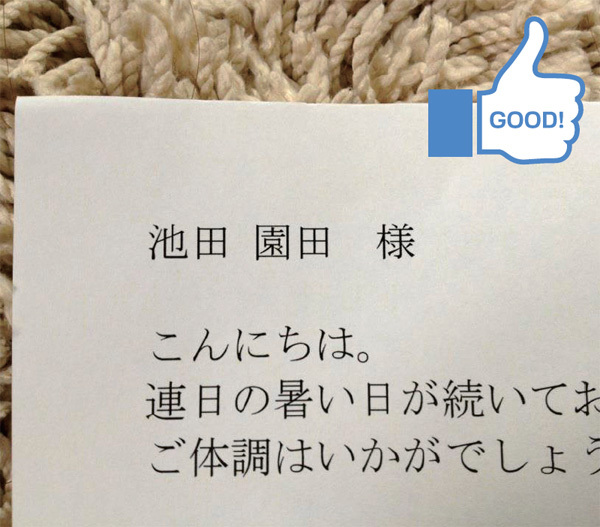 GOOD!
池田 園田　様
こんにちは。
連日の暑い日が続いてお
ご体調はいかがでしょう